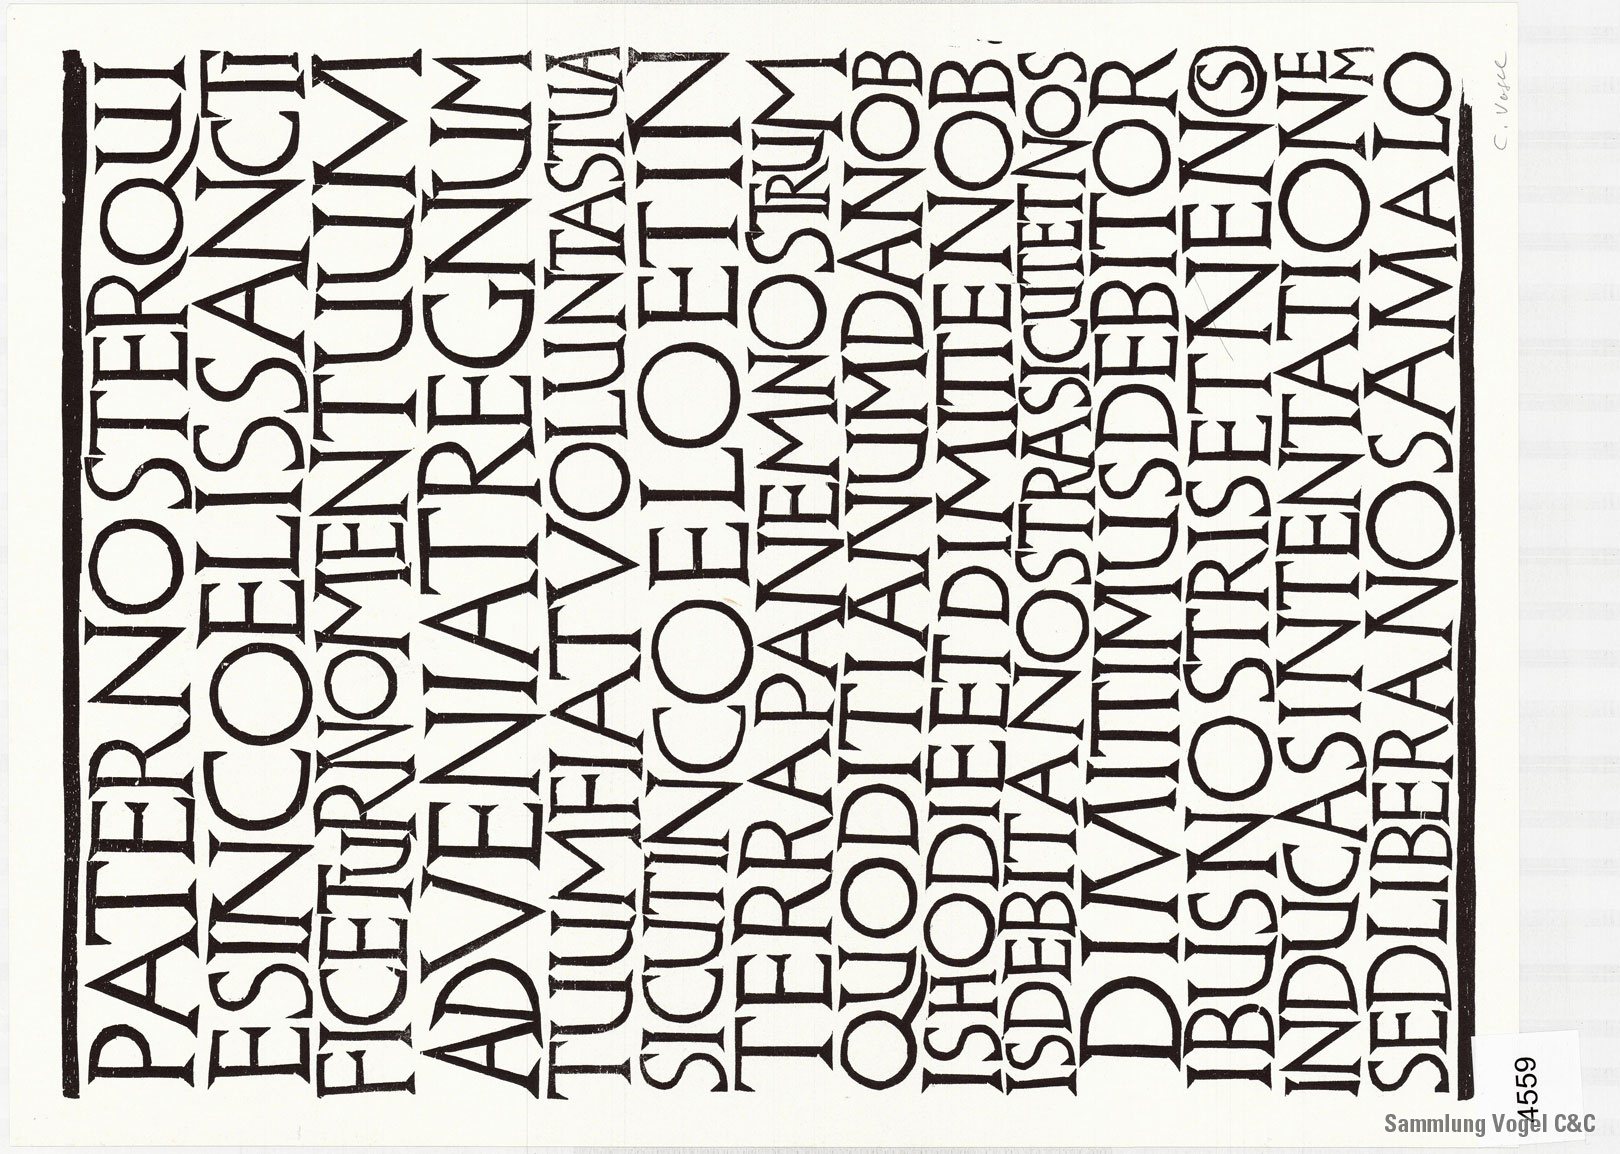 PATERNOSTERQUI
ESINCOELISSANCTI
FICETURNOMENTUUM
ADVENIATREGNUM
TUUMFIATVOLUNTASTUA
SICUTINCOELOETIN
TERRAPANEMNOSTRUM
QUODITIANUMDANOB
ISHODIEETDIMITTENOB
ISDEBITANOSTRASICUTETNOS
DIMITTIMUSDEBITOR
IBUSNOSTRISETNENOS
INDUCASINTENTATIONEM
SEDLIBERANOSAMALO
C. Vogel
4559
Sammlung Vogel C&C